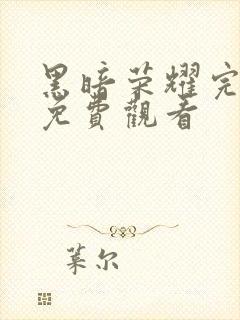 黑暗荣耀完
免費觀看
葉尔